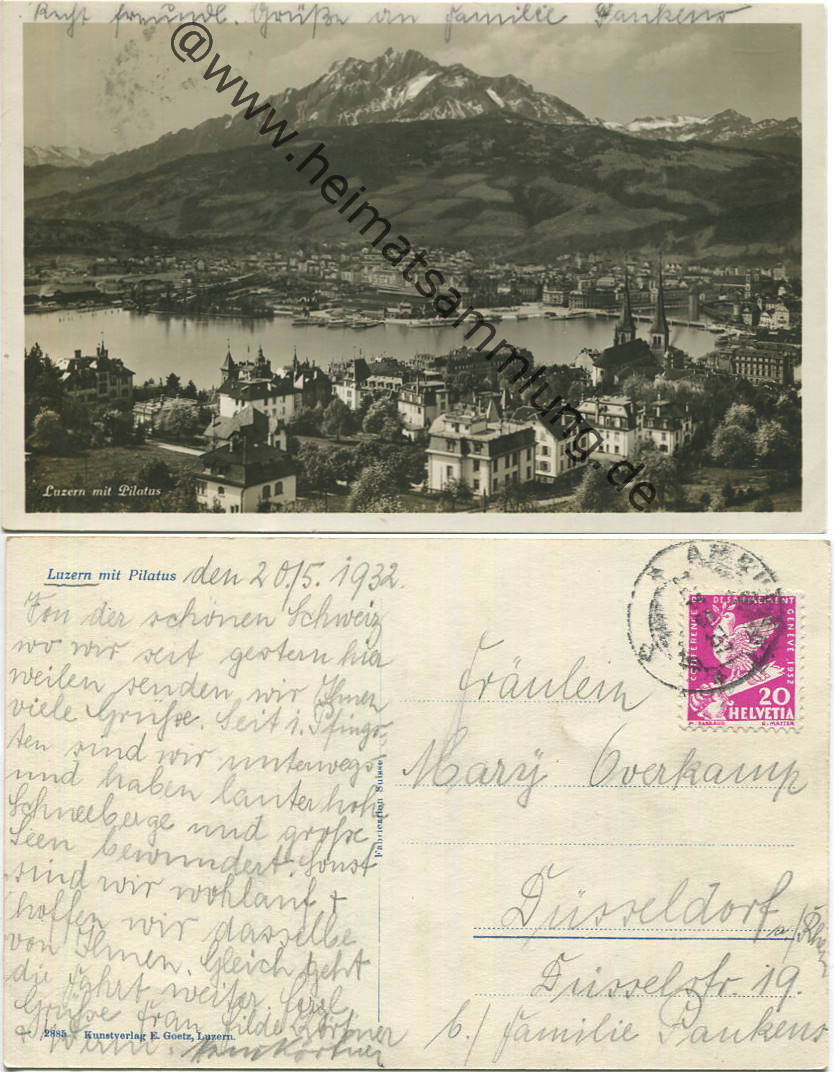 Recht freundl. Grüße an Familie Fankens
@www.heimatsammlung.de
Luzern mit Pilatus
Luzern mit Pilatus
den 20/5. 1932.
Von der schönen Schweiz
wo wir seit gestern hier
weilen senden wir Ihnen
viele Grüße. Seit i. Pfings-
ten sind wir unterwegs
und haben lauter hohe
Schneeberge und große
Seen bewundert. Sonst
sind wir wohlauf +
hoffen wir dasselbe
von Ihnen. Gleich geht
die Fahrt weiter. Herzl.
Grüße Frau Hilde Körtner
+
2885 Kunstverlag E. Goetz, Luzern.
Fabrication Suisse
CONFERENCE DU DESARMEMENT GENÈVE 1932
20
HELVETIA
Fräulein
Mary Overkamp
Düsseldorf
a/Rhein
Düsselstr. 19.
b./ Familie Fankens